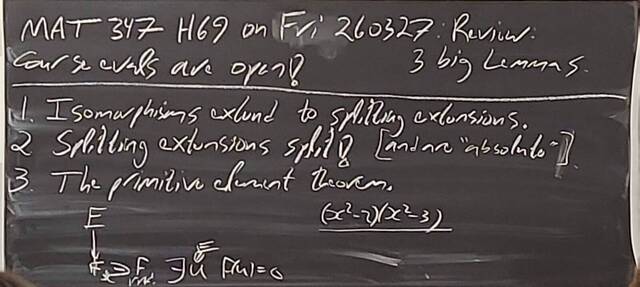 MAT 347 H69 on Fri 260327: Review:
Course evals are open! 3 big Lemmas.
1. Isomorphisms extend to splitting extensions.
2 Splitting extensions split! [and are "absolute"]
3. The primitive element theorem.
E (x²-2)(x²-3)
F ∋ F ∃u F(u)=0